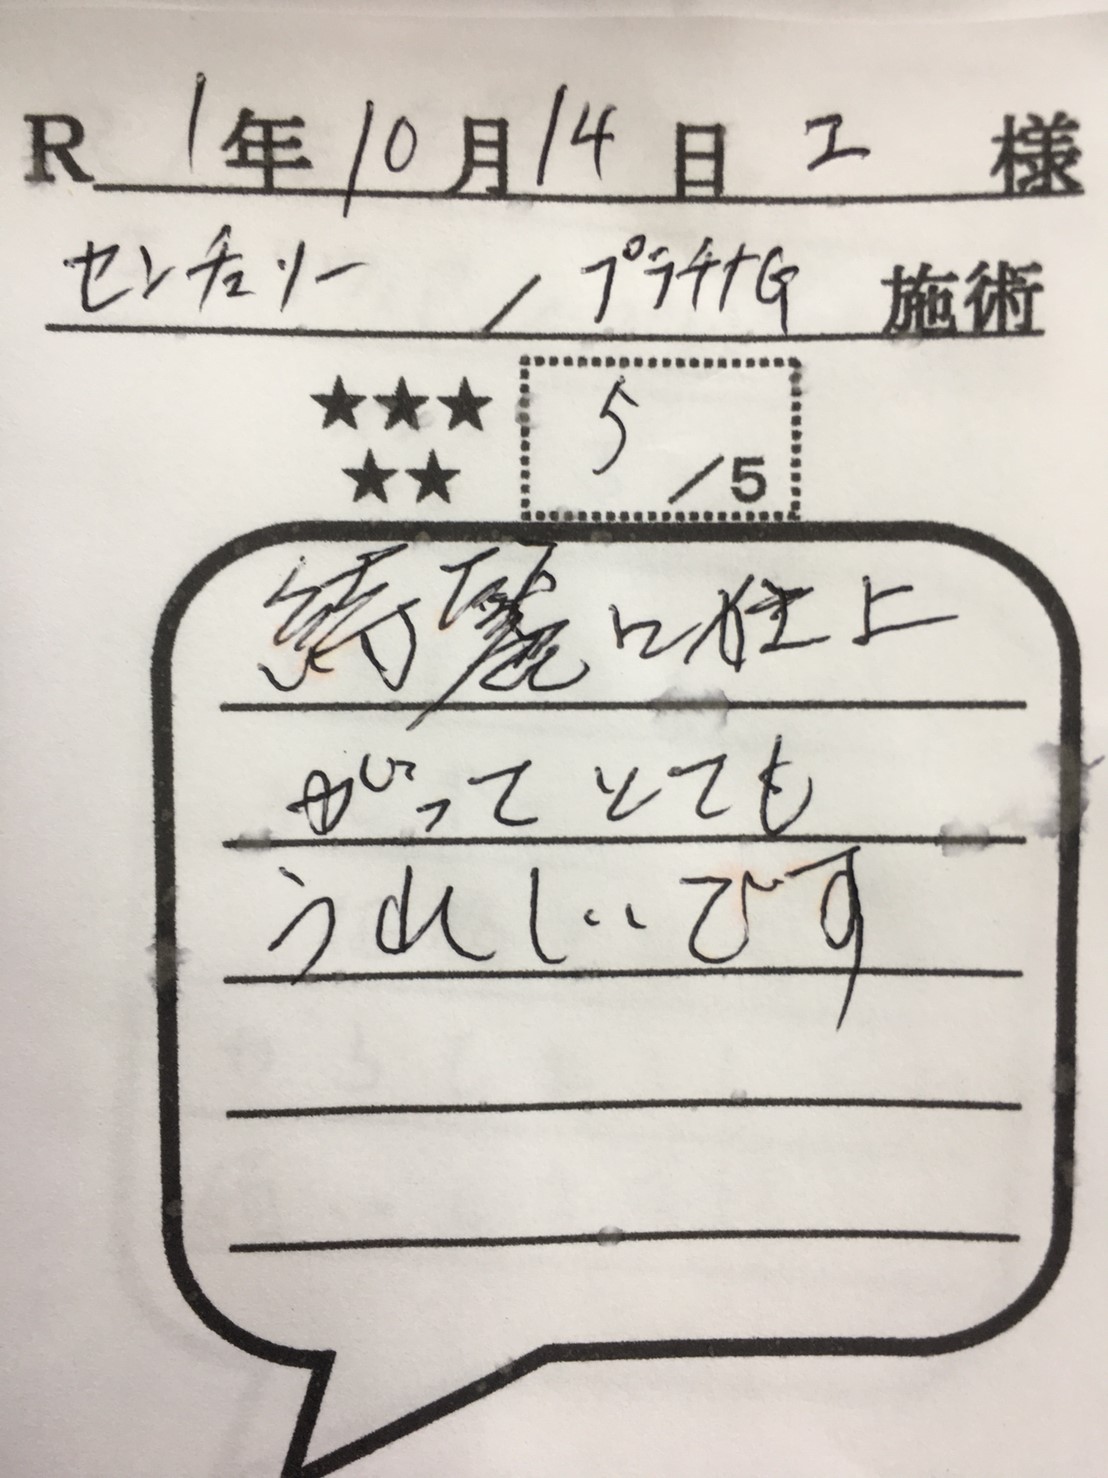 R 1年10月14日 エ 様
センチュリー / プラチナG 施術
★★★
★★
5 /5
綺麗に仕上
がってとても
うれしいです